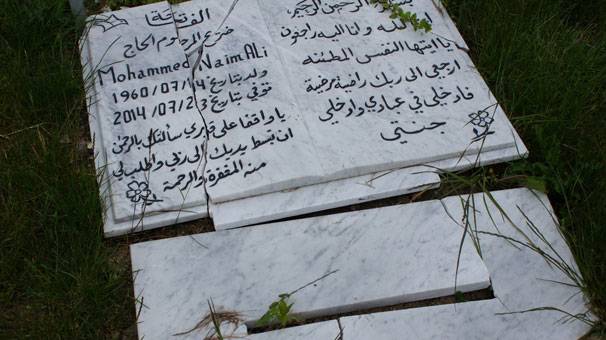 الله الرحمن الرحيم
انا لله وانا اليه راجعون
يا ايتها النفس المطمئنه
ارجعي الى ربك راضية مرضية
فادخلي في عبادي وادخلي
جنتي
الفاتحة
ضريح المرحوم الحاج
Mohammed Naim Ali
ولد بتاريخ 1960/07/14
توفي بتاريخ 2014/07/23
يا واقفا على قبري سألتك بالرحمن
ان تبسط يديك الى ربي واطلب لي
منه المغفرة والرحمة